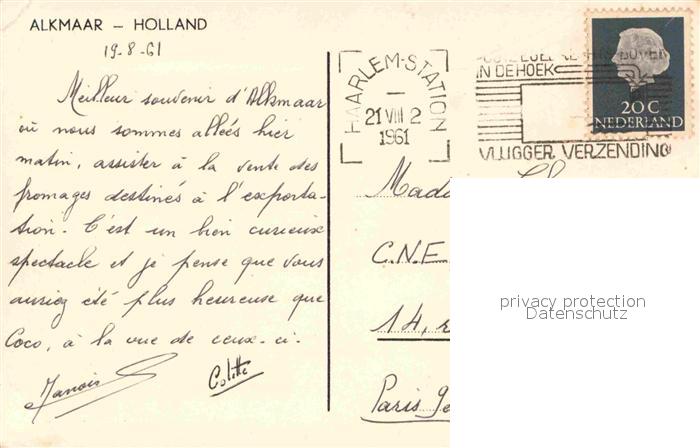 ALKMAAR – HOLLAND
19-8-61
Meilleur souvenir d'Alkmaar
où nous sommes allées hier
matin, assister à la vente des
fromages destinés à l'exporta-
tion. C'est un bien curieux
spectacle et je pense que vous
auriez été plus heureuse que
Coco, à la vue de ceux-ci.
Colette
HAARLEM-STATION
21 VIII 2
1961
IN DE HOEK
VLUGGER VERZENDING
20 C
NEDERLAND
Mada
C.N.E
14, r
Paris 9e
privacy protection
Datenschutz